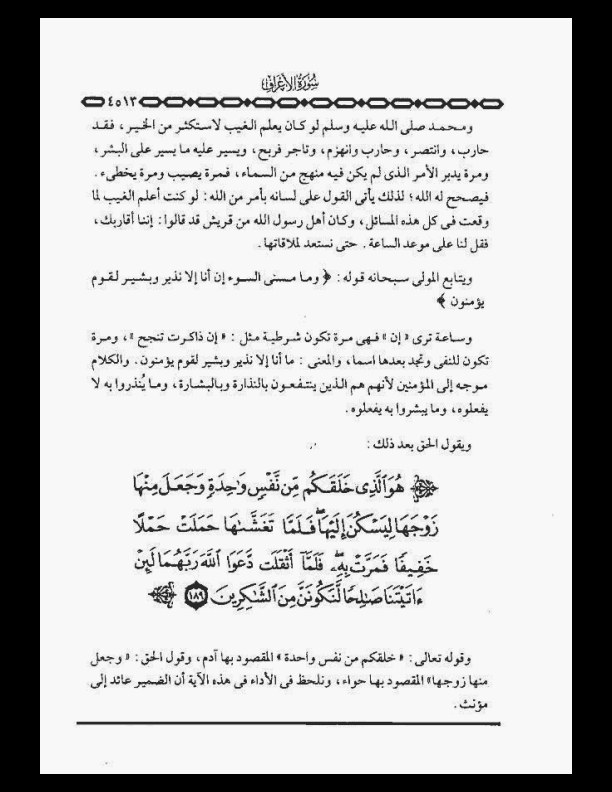 سورة الأعراف
٤٥١٣
ومحمد صلى الله عليه وسلم لو كان يعلم الغيب لاستكثر من الخير ، فقد
حارب ، وانتصر ، وحارب وانهزم ، وتاجر فربح ، ويسير عليه ما يسير على البشر ،
ومرة يدبر الأمر الذى لم يكن فيه منهج من السماء ، فمرة يصيب ومرة يخطىء .
فيصحح له الله ؛ لذلك يأتى القول على لسانه بأمر من الله : لو كنت أعلم الغيب لما
وقعت فى كل هذه المسائل ، وكان أهل رسول الله من قريش قد قالوا : إننا أقاربك ،
فقل لنا على موعد الساعة . حتى نستعد لملاقاتها .
ويتابع المولى سبحانه قوله : ﴿ وما مسنى السوء إن أنا إلا نذير وبشير لقوم
يؤمنون ﴾
وساعة ترى « إن » فهى مرة تكون شرطية مثل : « إن ذاكرت تنجح » ، ومرة
تكون للنفى وتجد بعدها اسما ، والمعنى : ما أنا إلا نذير وبشير لقوم يؤمنون . والكلام
موجه إلى المؤمنين لأنهم هم الذين ينتفعون بالنذارة وبالبشارة ، وما يُنذروا به لا
يفعلوه ، وما يبشروا به يفعلوه .
ويقول الحق بعد ذلك :
هُوَ ٱلَّذِى خَلَقَكُم مِّن نَّفْسٍ وَٰحِدَةٍ وَجَعَلَ مِنْهَا
زَوْجَهَا لِيَسْكُنَ إِلَيْهَا ۖ فَلَمَّا تَغَشَّىٰهَا حَمَلَتْ حَمْلًا
خَفِيفًا فَمَرَّتْ بِهِۦ ۖ فَلَمَّآ أَثْقَلَت دَّعَوَا ٱللَّهَ رَبَّهُمَا لَئِنْ
ءَاتَيْتَنَا صَٰلِحًا لَّنَكُونَنَّ مِنَ ٱلشَّٰكِرِينَ ١٨٩
وقوله تعالى : « خلقكم من نفس واحدة » المقصود بها آدم ، وقول الحق : « وجعل
منها زوجها » المقصود بها حواء ، ونلحظ فى الأداء فى هذه الآية أن الضمير عائد إلى
مؤنث .